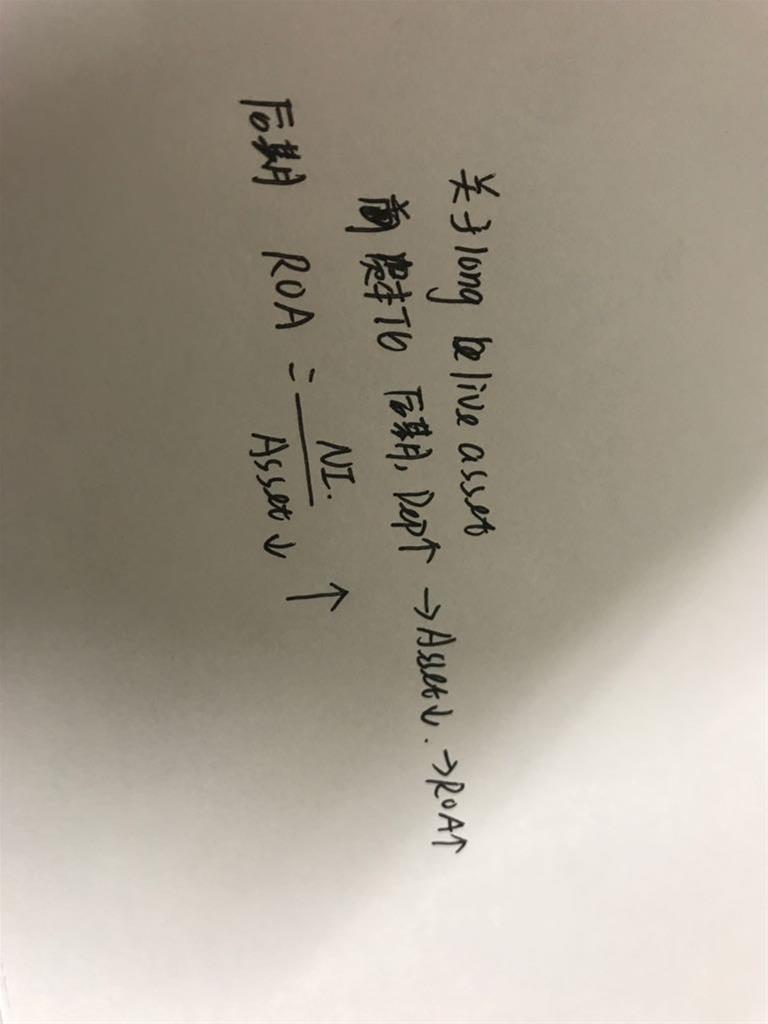 关于long be live asset
后期, Dep↑ →Asset↓. →ROA↑
后期 ROA = NI. / Asset↓ ↑